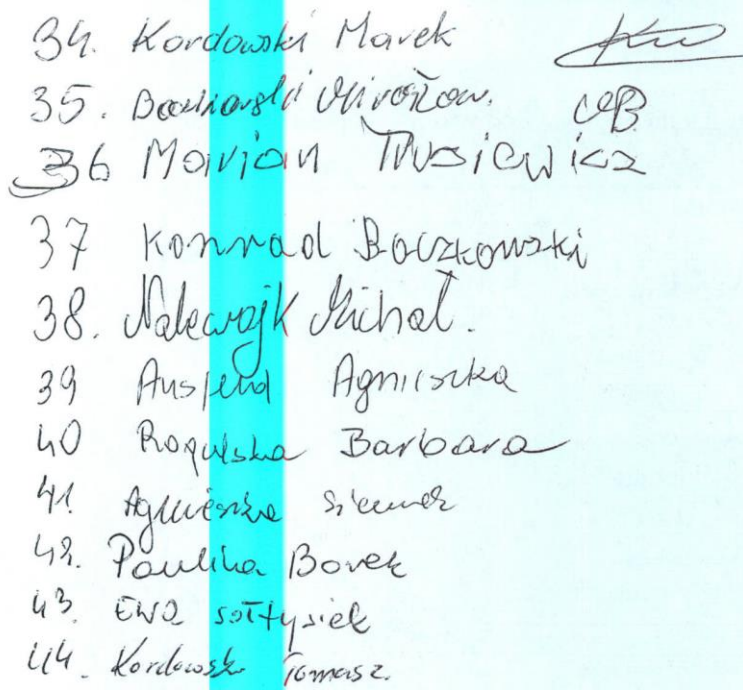 34. Kordowski Marek
35. Mirosław.
36 Marian Trusiewicz
37 Konrad Boczkowski
38. Nalewajk Michał.
39 Agnieszka
40 Rogulska Barbara
41. Agnieszka
42. Paulina Borek
43. Ewa Sołtysiek
44. Kordowski Tomasz.